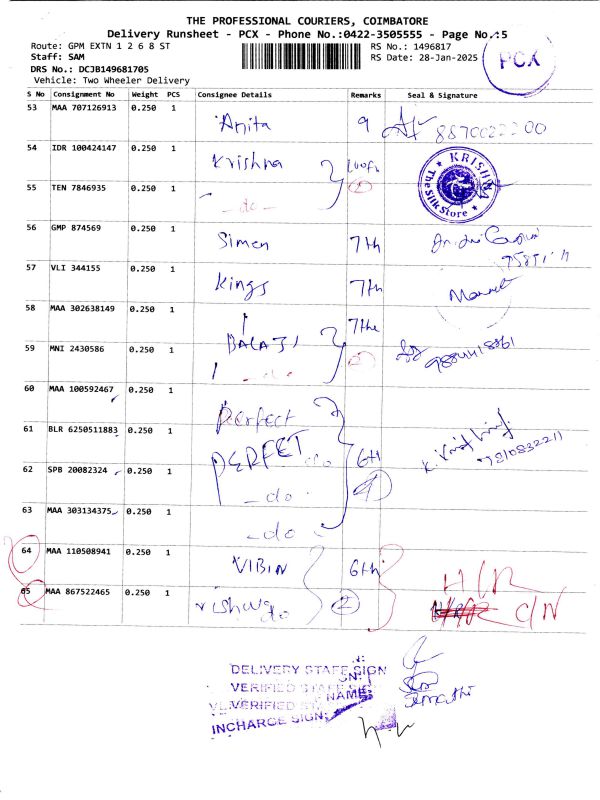 THE PROFESSIONAL COURIERS, COIMBATORE
Delivery Runsheet - PCX - Phone No.:0422-3505555 - Page No.:5
Route: GPM EXTN 1 2 6 8 ST RS No.: 1496817
Staff: SAM RS Date: 28-Jan-2025
PCX
DRS No.: DCJB149681705
Vehicle: Two Wheeler Delivery
S No Consignment No Weight PCS Consignee Details Remarks Seal & Signature
53 MAA 707126913 0.250 1 Anita 9
54 IDR 100424147 0.250 1 Krishna
KRISHNA The Silk Store
55 TEN 7846935 0.250 1 - do -
56 GMP 874569 0.250 1 Simen 7th
57 VLI 344155 0.250 1 Kings 7th
58 MAA 302638149 0.250 1 BALAJI 7the
59 MNI 2430586 0.250 1 - do 2
60 MAA 100592467 0.250 1 perfect
61 BLR 6250511883 0.250 1 PERFET do 6th
62 SPB 20082324 0.250 1 - do - 4
63 MAA 303134375 0.250 1 - do -
64 MAA 110508941 0.250 1 VIBIN 6th
65 MAA 867522465 0.250 1 do 2 C/N
DELIVERY STAFF SIGN
VERIFIED STAFF
NAME:
VERIFIED
INCHARGE SIGN: